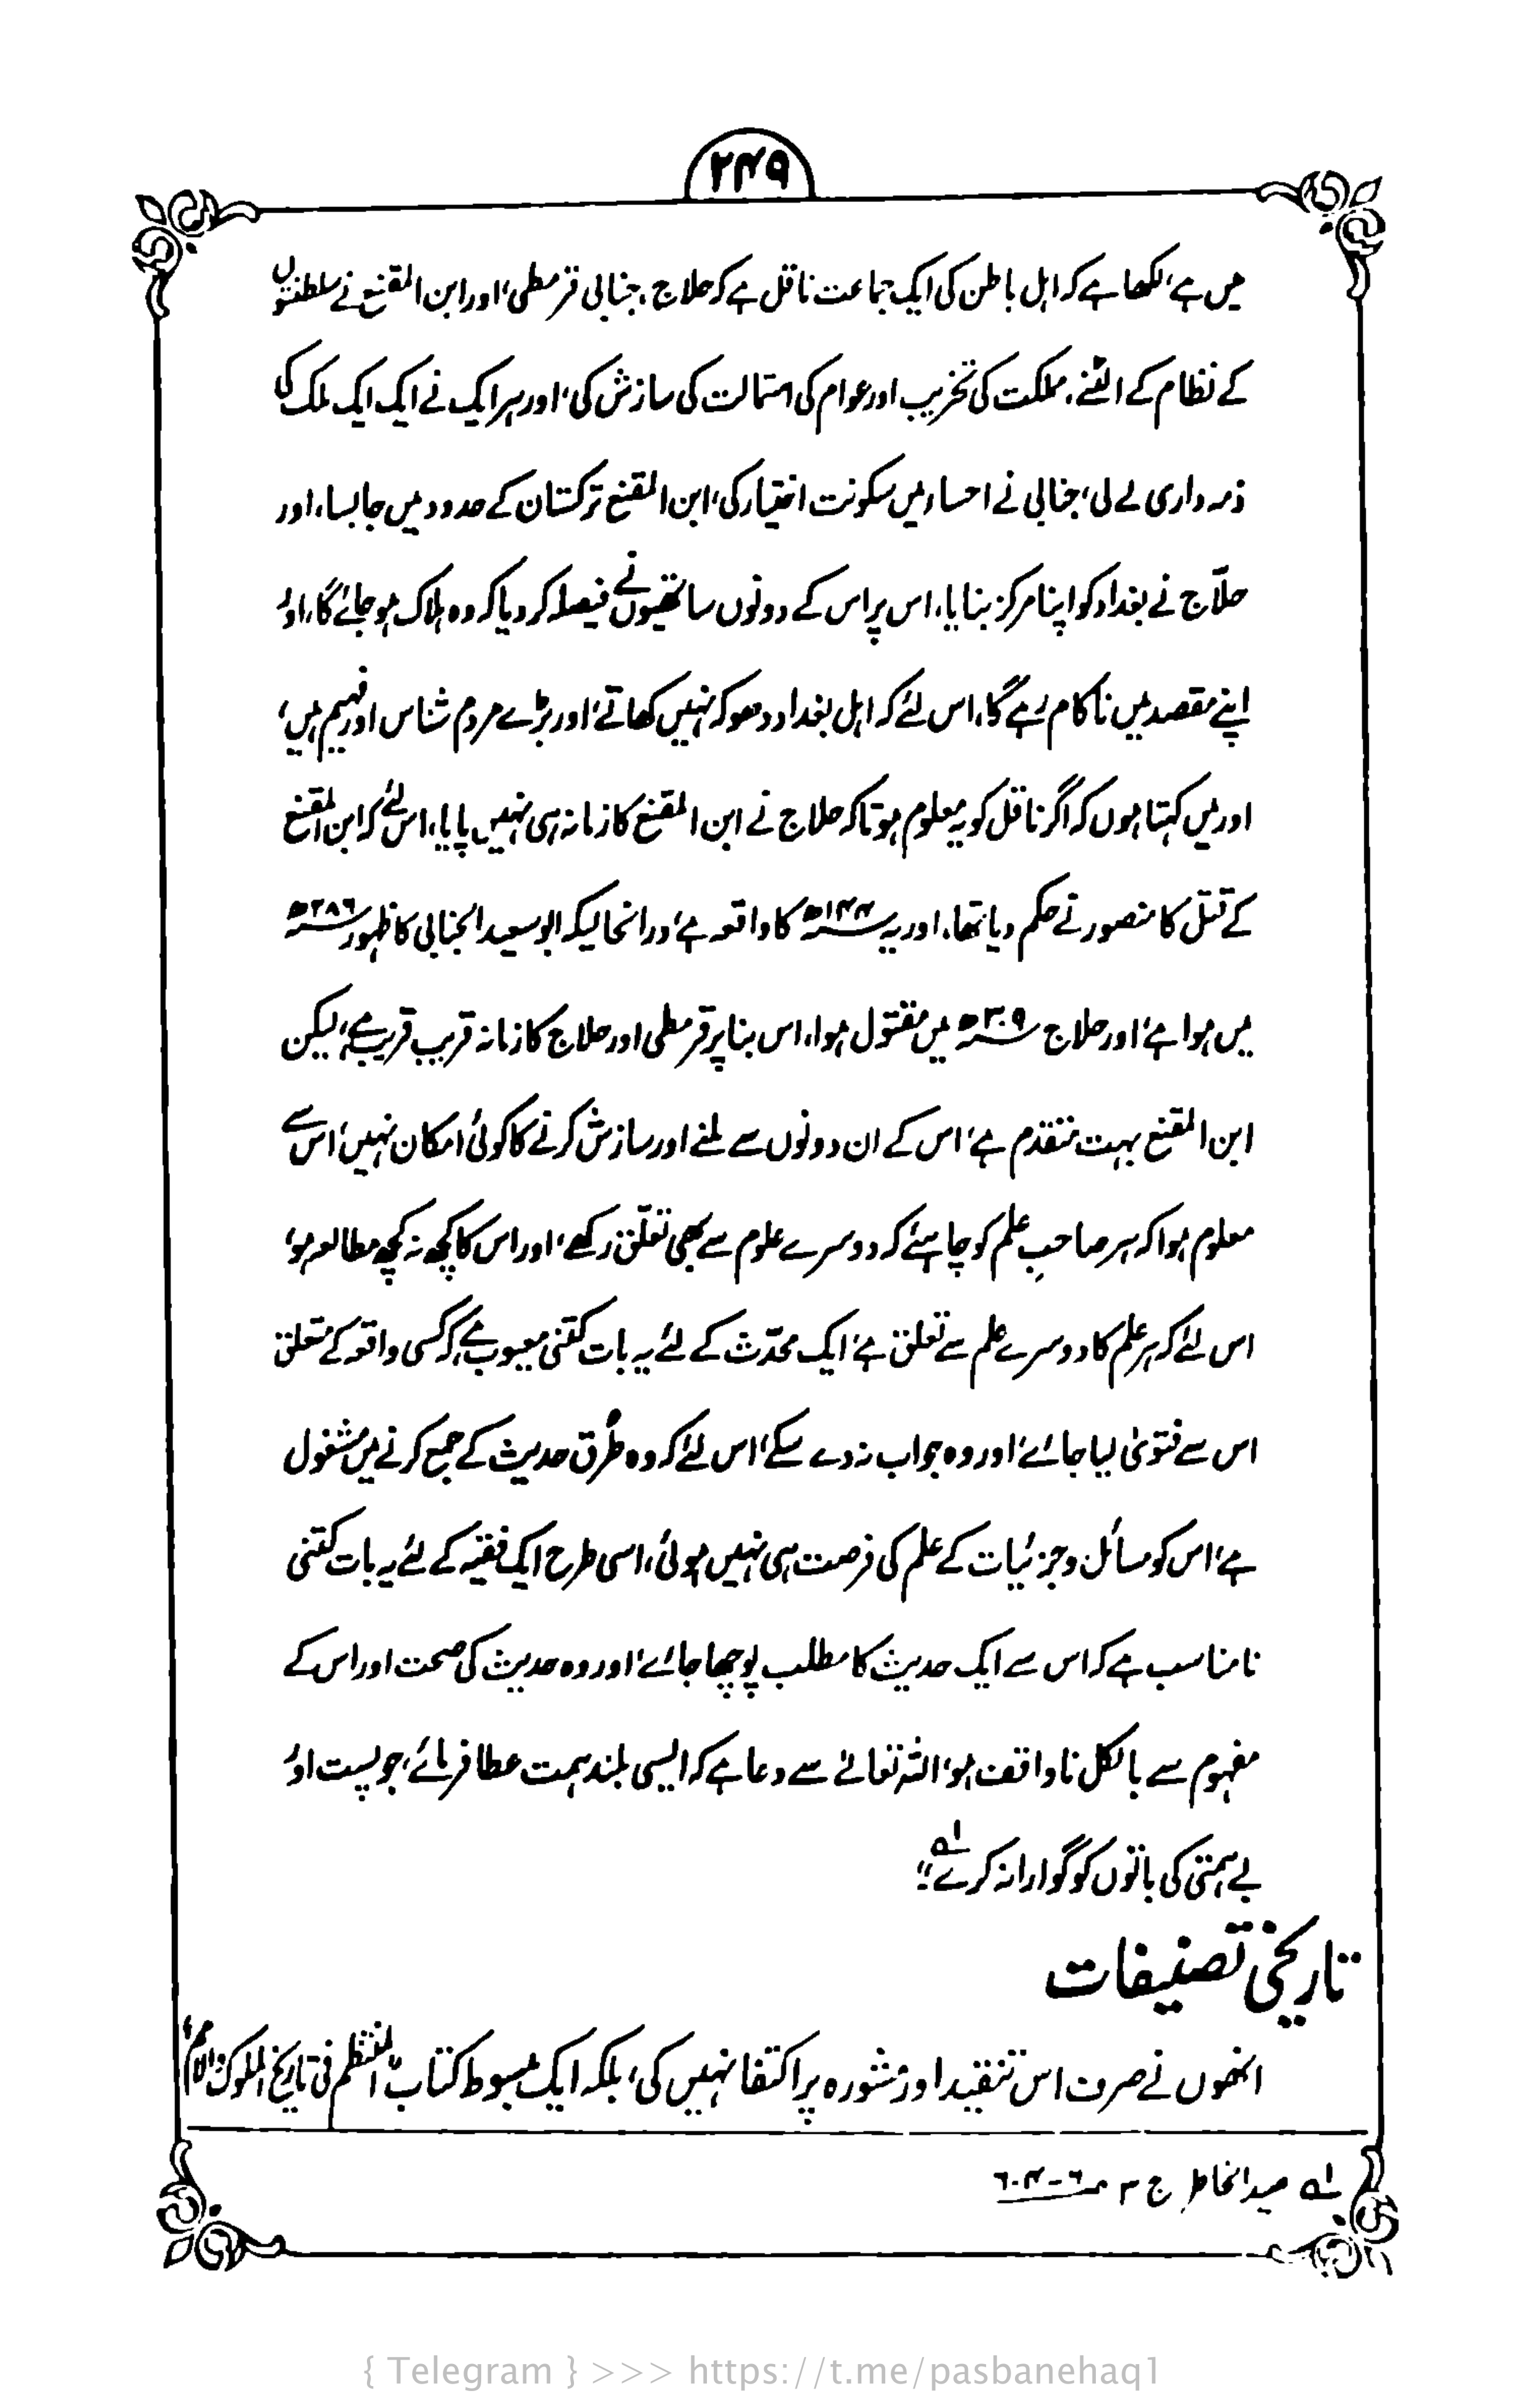 ۲۴۹
میں ہے، لکھا ہے کہ اہل باطن کی ایک جماعت ناقل ہے کہ حلاج، جنابی قرمطی، اور ابن المقنع نے سلطنتوں
کے نظام کے الٹنے، مملکت کی تخریب اور عوام کی استمالت کی سازش کی، اور ہر ایک نے ایک ایک ملک کی
ذمہ داری لے لی، جنابی نے احساء میں سکونت اختیار کی، ابن المقنع ترکستان کے حدود میں جا بسا، اور
حلّاج نے بغداد کو اپنا مرکز بنایا، اس پر اس کے دونوں ساتھیوں نے فیصلہ کر دیا کہ وہ ہلاک ہو جائے گا، اور
اپنے مقصد میں ناکام رہے گا، اس لئے کہ اہل بغداد دھوکہ نہیں کھاتے، اور بڑے مردم شناس اور فہیم ہیں،
اور میں کہتا ہوں کہ اگر ناقل کو یہ معلوم ہوتا کہ حلاج نے ابن المقنع کا زمانہ ہی نہیں پایا، اس لئے کہ ابن المقنع
کے قتل کا منصور نے حکم دیا تھا، اور یہ ۱۴۴ھ کا واقعہ ہے، درانحالیکہ ابو سعید الجنابی کا ظہور ۲۸۶ھ
میں ہوا ہے، اور حلاج ۳۰۹ھ میں مقتول ہوا، اس بنا پر قرمطی اور حلاج کا زمانہ قریب قریب ہے، لیکن
ابن المقنع بہت متقدم ہے، اس کے ان دونوں سے ملنے اور سازش کرنے کا کوئی امکان نہیں، اس سے
معلوم ہوا کہ ہر صاحبِ علم کو چاہئے کہ دوسرے علوم سے بھی تعلّق رکھے، اور اس کا کچھ نہ کچھ مطالعہ ہو،
اس لئے کہ ہر علم کا دوسرے علم سے تعلق ہے، ایک محدّث کے لئے یہ بات کتنی معیوب ہے، کہ کسی واقعہ کے متعلق
اس سے فتویٰ لیا جائے، اور وہ جواب نہ دے سکے، اس لئے کہ وہ طُرق حدیث کے جمع کرنے میں مشغول
ہے، اس کو مسائل و جزئیات کے علم کی فرصت ہی نہیں ہوئی، اسی طرح ایک فقیہ کے لئے یہ بات کتنی
نامناسب ہے کہ اس سے ایک حدیث کا مطلب پوچھا جائے، اور وہ حدیث کی صحت اور اس کے
مفہوم سے بالکل ناواقف ہو، اللہ تعالیٰ سے دعا ہے کہ ایسی بلند ہمت عطا فرمائے، جو پست اور
بے ہمتی کی باتوں کو گوارا نہ کرے۔"لہ
تاریخی تصنیفات
انھوں نے صرف اس تنقید اور مشورہ پر اکتفا نہیں کی، بلکہ ایک مبسوط کتاب "المنتظم فی تاریخ الملوک والامم"
لہ صید الخاطر ج ۳ ص ۶-۶۰۴
{ Telegram } >>> https://t.me/pasbanehaq1